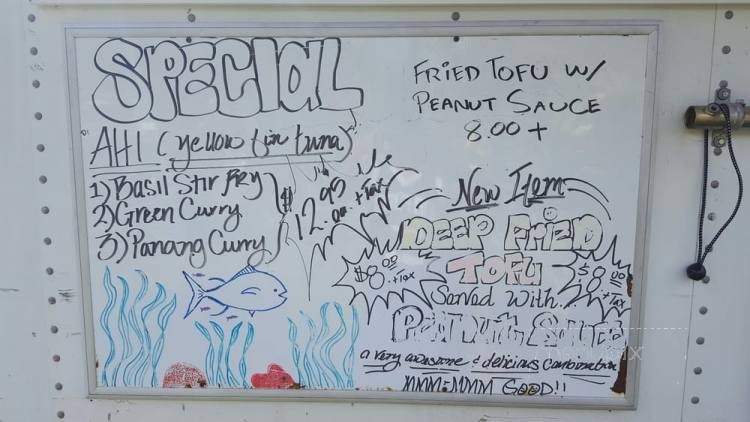 SPECIAL
AHI (yellow fin tuna)
1) Basil Stir Fry
2) Green Curry
3) Panang Curry
$12.00 + Tax
FRIED TOFU W/
PEANUT SAUCE
8.00 +
New Item
DEEP FRIED
TOFU
$8.00 + Tax
$8.00 + TAX
Served With...
Peanut Sauce
a very awesome & delicious Combination
MMM-MMM GOOD!!